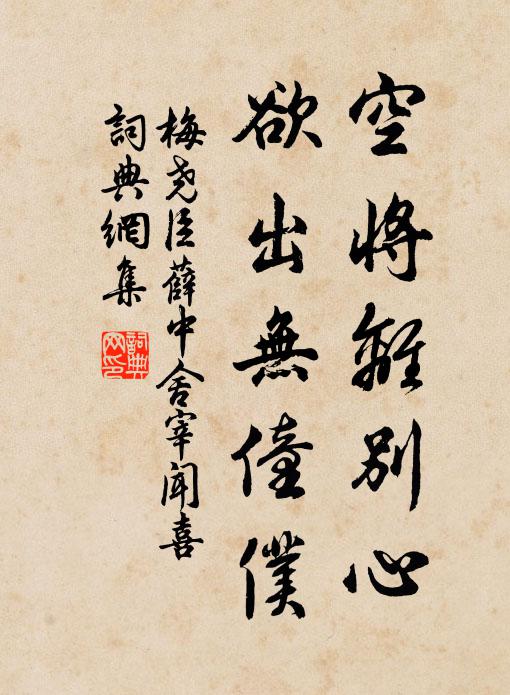 空將離別心
欲出無僮僕
梅堯臣薛中舍宰聞喜
詞典網集
詞典網印